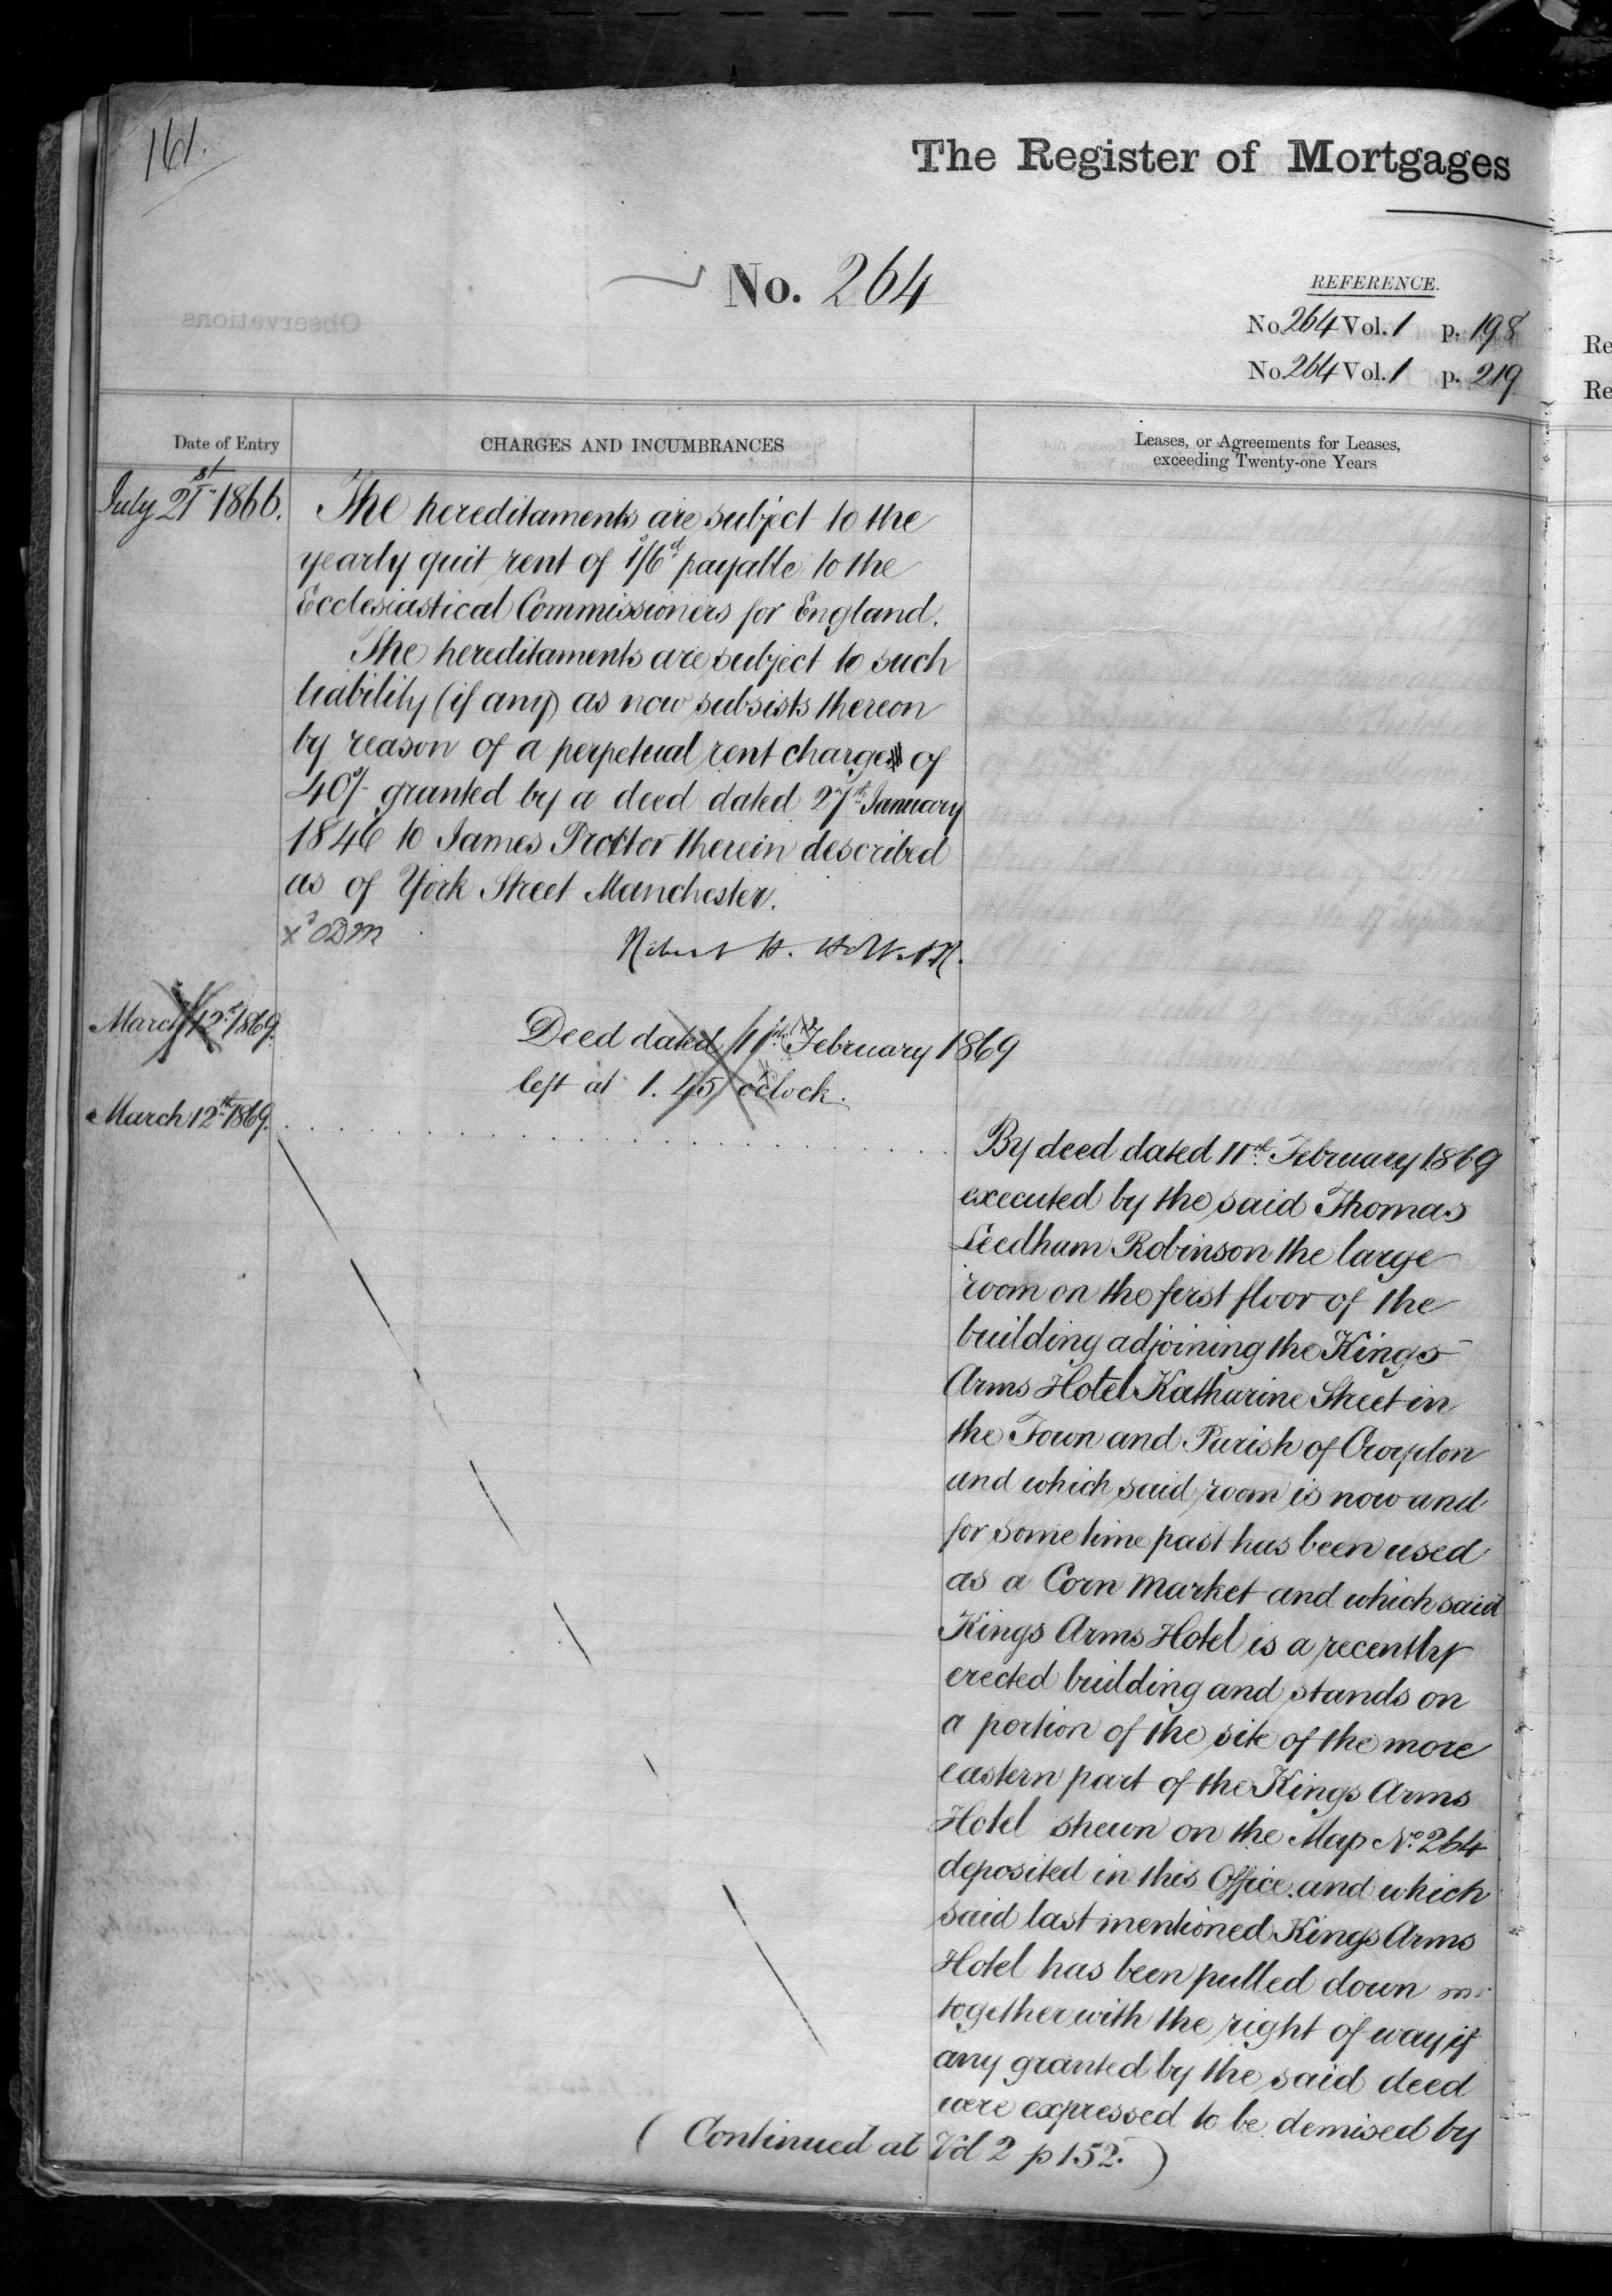 161.
The Register of Mortgages
No. 264
REFERENCE.
No 264 Vol. 1 p. 198
No 264 Vol. 1 p. 219
Observations
Date of Entry
CHARGES AND INCUMBRANCES
Leases, or Agreements for Leases,
exceeding Twenty-one Years
July 21st 1866.
The hereditaments are subject to the
yearly quit rent of 1s/6d payable to the
Ecclesiastical Commissioners for England.
The hereditaments are subject to such
liability (if any) as now subsists thereon
by reason of a perpetual rent charge of
40s/- granted by a deed dated 27th January
1846 to James Procter therein described
as of York Street Manchester.
March 12th 1869.
Deed dated 11th February 1869
left at 1.45 o'clock.
March 12th 1869.
By deed dated 11th February 1869
executed by the said Thomas
Leedham Robinson the large
room on the first floor of the
building adjoining the Kings
Arms Hotel Katharine Street in
the Town and Parish of Croydon
and which said room is now and
for some time past has been used
as a Corn Market and which said
Kings Arms Hotel is a recently
erected building and stands on
a portion of the site of the more
eastern part of the Kings Arms
Hotel shewn on the Map No. 264
deposited in this Office and which
said last mentioned Kings Arms
Hotel has been pulled down
together with the right of way if
any granted by the said deed
were expressed to be demised by
(Continued at Vol 2 p 152.)
Re
Re